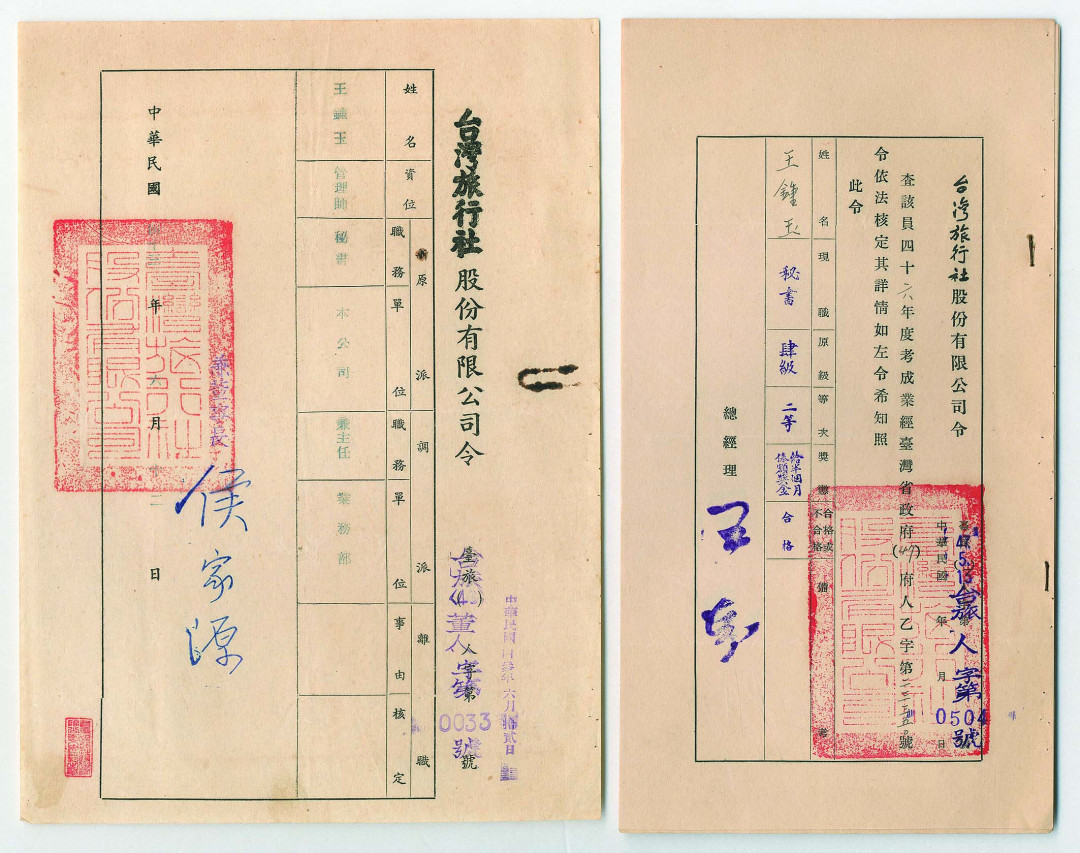 台灣旅行社股份有限公司令
臺旅人字第0033號
中華民國四拾叁年六月拾貳日
姓名 資位 原派 職務 單位 調派 職務 單位 離職 事由 核定
王鍾玉 管理師 秘書 本公司 兼主任 業務部
中華民國 年六月 日
兼董事長
侯家源
台灣旅行社股份有限公司令
台旅人字第0504號
中華民國 年 月 日
查該員四十六年度考成業經臺灣省政府(47)府人乙字第 號
令依法核定其詳情如左令希知照
此令
姓名 現職 原級 等次 獎懲 合格或不合格 備考
王鍾玉 秘書 肆級 二等 給半個月俸額獎金 合格
總經理